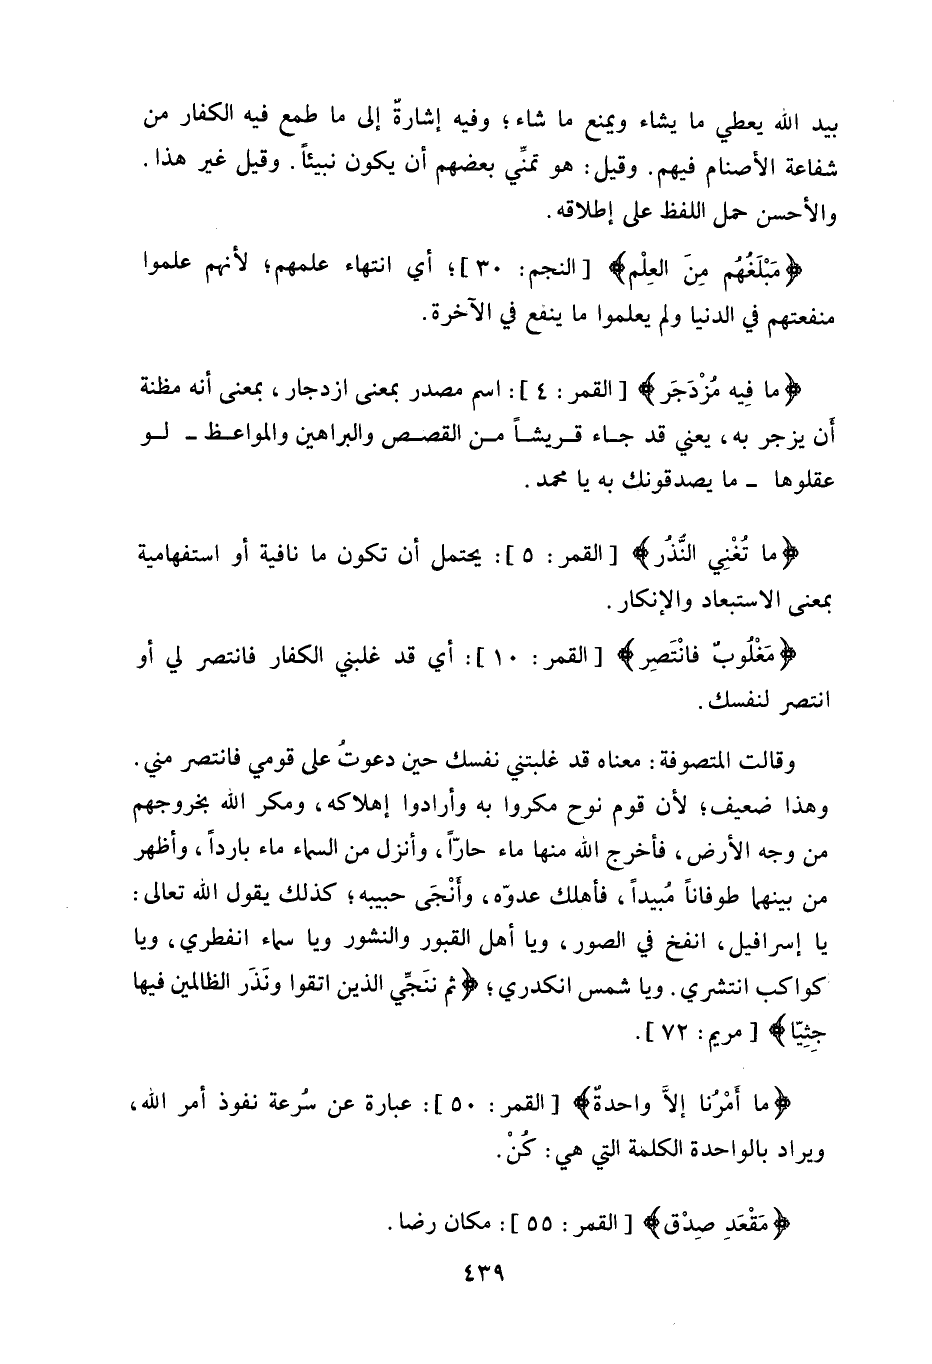 بيد الله يعطي ما يشاء ويمنع ما شاء؛ وفيه إشارةٌ إلى ما طمع فيه الكفار من
شفاعة الأصنام فيهم. وقيل: هو تمنِّي بعضهم أن يكون نبيئاً. وقيل غير هذا.
والأحسن حمل اللفظ على إطلاقه.
﴿مَبْلَغُهُم مِنَ العِلْم﴾ [النجم: ٣٠]؛ أي انتهاء علمهم؛ لأنهم علموا
منفعتهم في الدنيا ولم يعلموا ما ينفع في الآخرة.
﴿ما فِيه مُزْدَجَر﴾ [القمر: ٤]: اسم مصدر بمعنى ازدجار، بمعنى أنه مظنة
أَن يزجر به، يعني قد جاء قريشاً من القصص والبراهين والمواعظ ـ لو
عقلوها ـ ما يصدقونك به يا محمد.
﴿ما تُغْنِي النُّذُر﴾ [القمر: ٥]: يحتمل أن تكون ما نافية أو استفهامية
بمعنى الاستبعاد والإنكار.
﴿مَغْلُوبٌ فانْتَصِر﴾ [القمر: ١٠]: أي قد غلبني الكفار فانتصر لي أو
انتصر لنفسك.
وقالت المتصوفة: معناه قد غلبتني نفسك حين دعوتُ على قومي فانتصر مني.
وهذا ضعيف؛ لأن قوم نوح مكروا به وأرادوا إهلاكه، ومكر الله بخروجهم
من وجه الأرض، فأخرج الله منها ماء حارّاً، وأنزل من السماء ماء بارداً، وأظهر
من بينهما طوفاناً مُبيداً، فأهلك عدوّه، وأَنْجَى حبيبه؛ كذلك يقول الله تعالى:
يا إسرافيل، انفخ في الصور، ويا أهل القبور والنشور ويا سماء انفطري، ويا
كواكب انتشري. ويا شمس انكدري؛ ﴿ثم ننَجِّي الذين اتقوا ونَذَر الظالمين فيها
جِثِيّا﴾ [مريم: ٧٢].
﴿ما أَمْرُنا إلاَّ واحدةٌ﴾ [القمر: ٥٠]: عبارة عن سُرعة نفوذ أمر الله،
ويراد بالواحدة الكلمة التي هي: كُنْ.
﴿مَقْعَدِ صِدْق﴾ [القمر: ٥٥]: مكان رضا.
٤٣٩